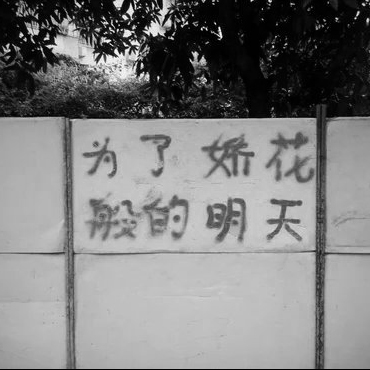 为了娇花
般的明天